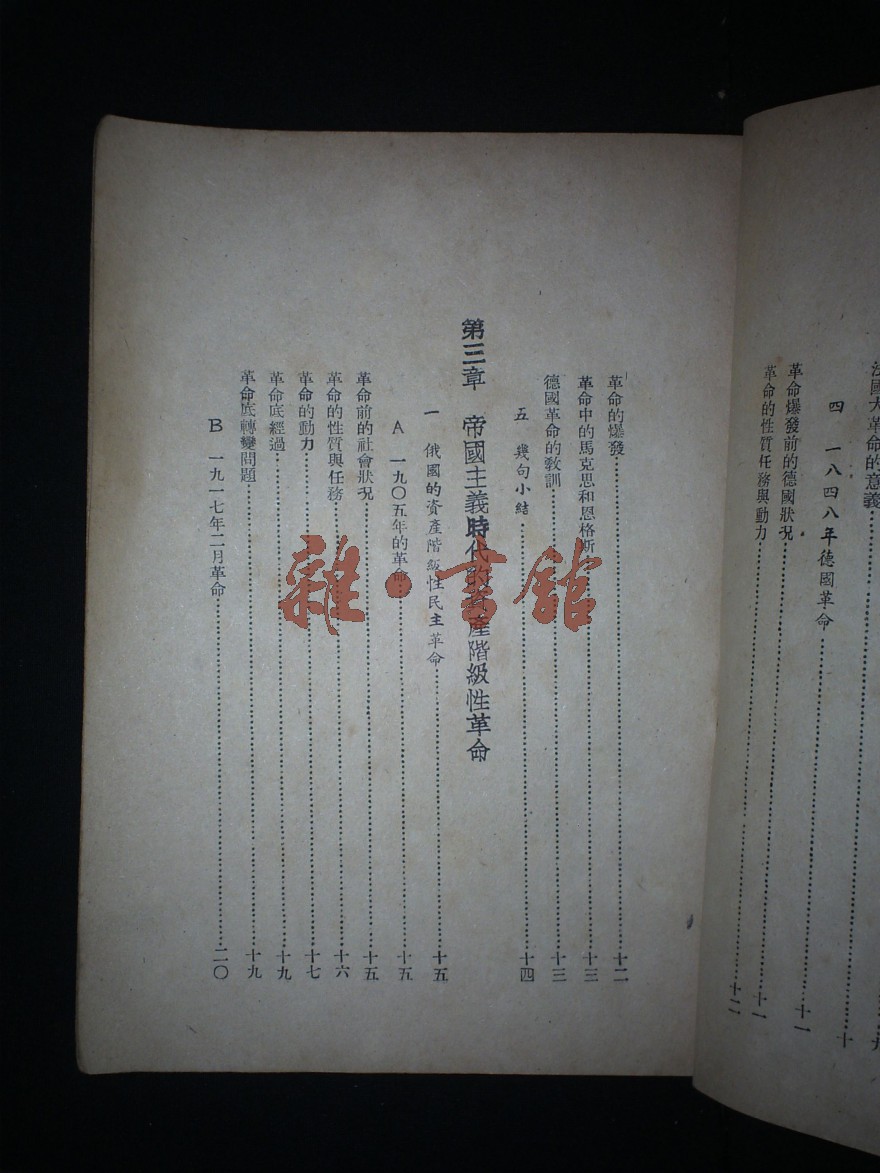 法國大革命的意義……九
四 一八四八年德國革命……十
革命爆發前的德國狀況……十一
革命的性質任務與動力……十一
……十二
革命的爆發……十二
革命中的馬克思和恩格斯……十三
德國革命的教訓……十三
五 幾句小結……十四
第三章 帝國主義時代的資產階級性革命
一 俄國的資產階級性民主革命……十五
A 一九〇五年的革命……十五
革命前的社會狀況……十五
革命的性質與任務……十六
革命的動力……十七
革命底經過……十九
革命底轉變問題……十九
B 一九一七年二月革命……二〇
雜·書館